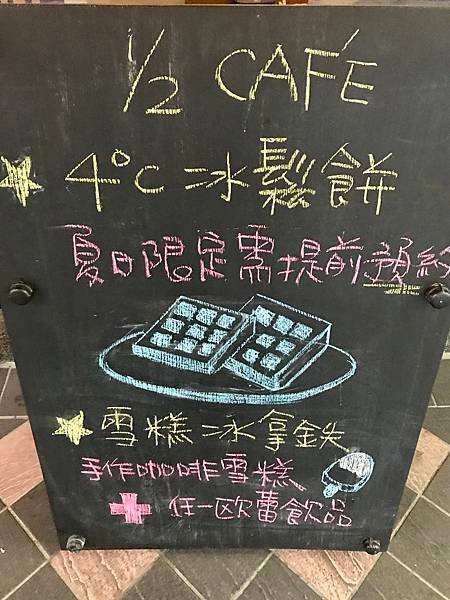 1/2 CAFE
4°C冰鬆餅
夏日限定需提前預約
雪糕冰拿鉄
手作咖啡雪糕
+ 任一欧蕾飲品